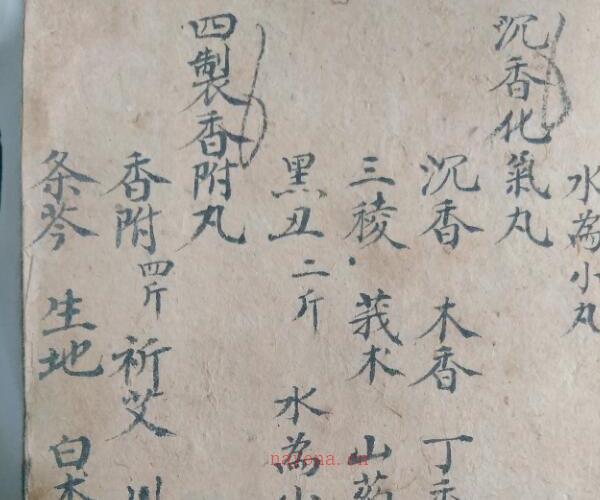 水為小丸
沉香化氣丸
沉香 木香 丁
三稜 莪朮 山药
黑丑 二斤 水為小
四製香附丸
香附 四斤 祈艾
条芩 生地 白
nayona.cn